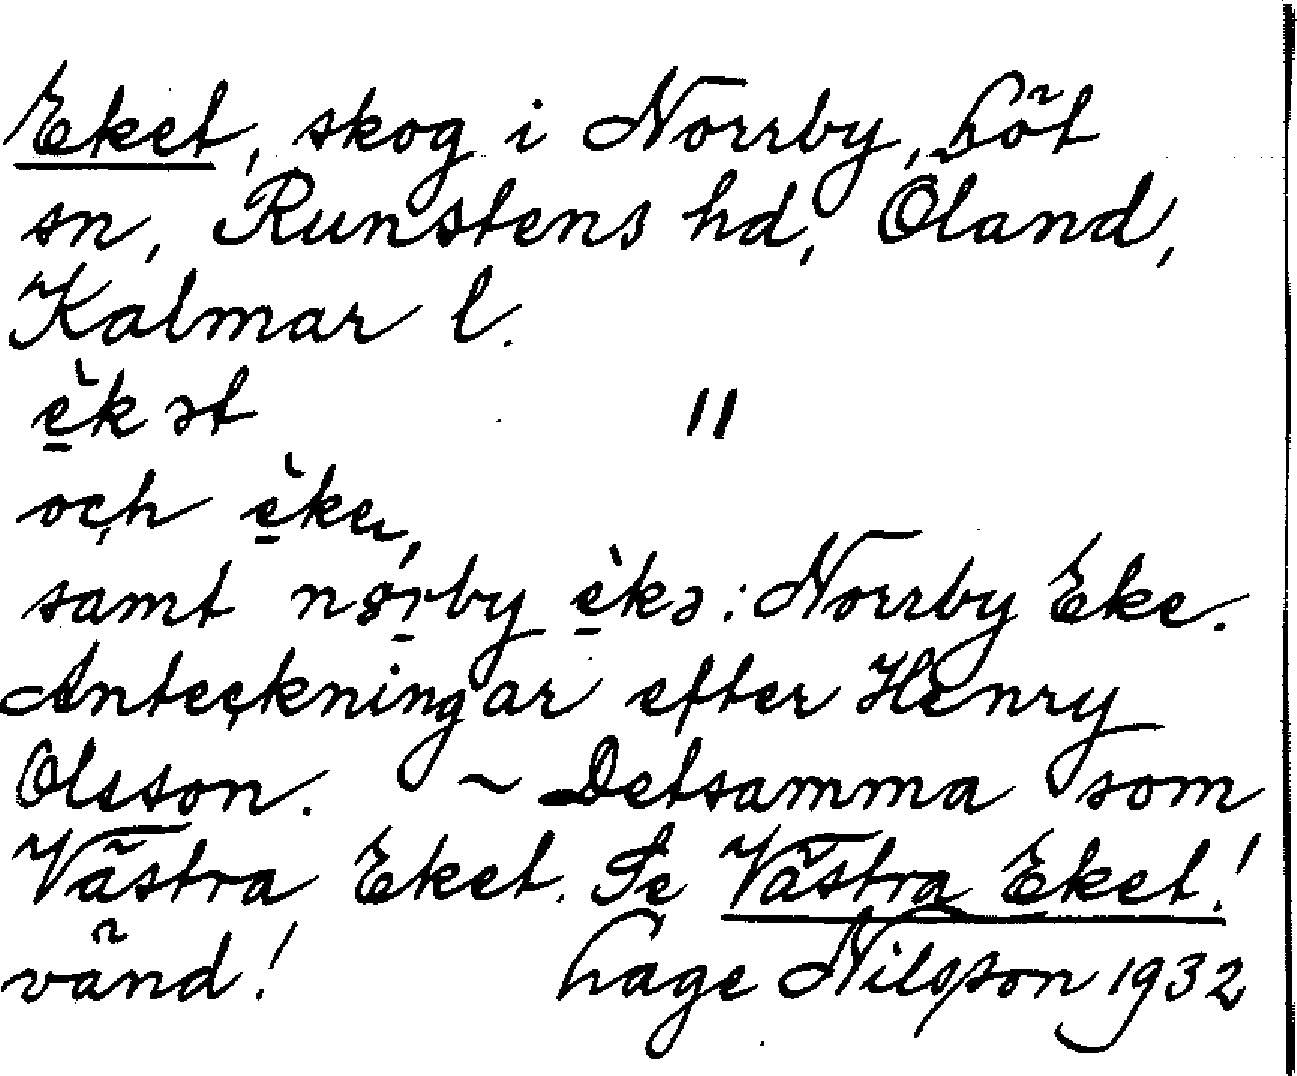 Eket, skog i Norrby, Löt
sn, Runstens hd, Öland,
Kalmar l.
è̠kət "
och è̠ke,
samt nø̀r̠by è̠kə: Norrby Eke.
Anteckningar efter Henry
Olsson. ~ Detsamma som
Västra Eket. Se Västra Eket!
vänd! Hage Nilsson 1932